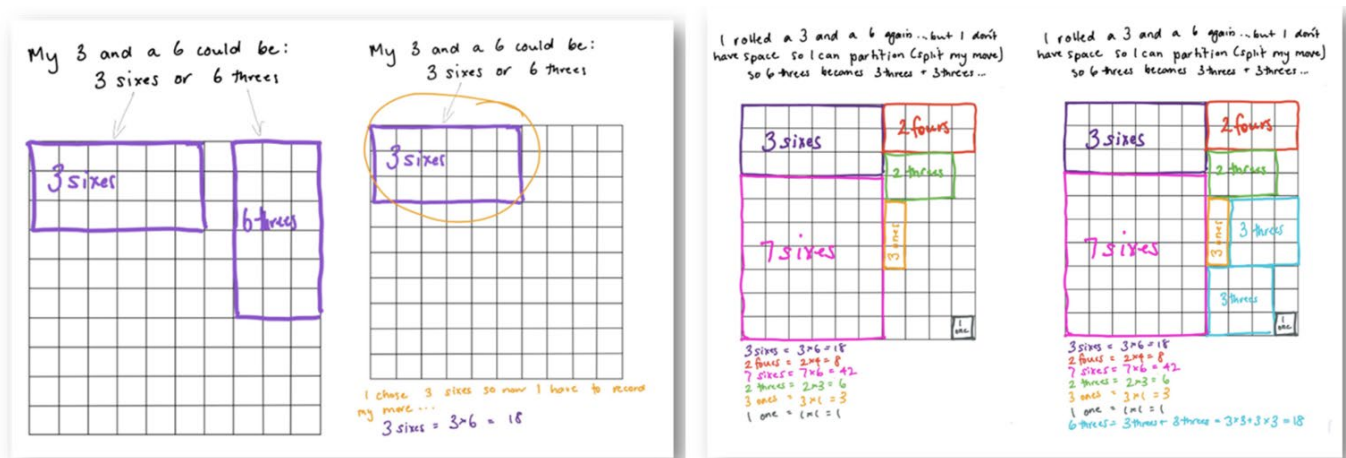 My 3 and a 6 could be:
3 sixes or 6 threes
3 sixes
6 threes
My 3 and a 6 could be:
3 sixes or 6 threes
3 sixes
I chose 3 sixes so now I have to record
my move...
3 sixes = 3×6 = 18
I rolled a 3 and a 6 again... but I don't
have space so I can partition (split my move)
so 6 threes becomes 3 threes + 3 threes...
3 sixes
2 fours
2 threes
7 sixes
3 ones
1
one
3 sixes = 3×6 = 18
2 fours = 2×4 = 8
7 sixes = 7×6 = 42
2 threes = 2×3 = 6
3 ones = 3×1 = 3
1 one = 1×1 = 1
I rolled a 3 and a 6 again... but I don't
have space so I can partition (split my move)
so 6 threes becomes 3 threes + 3 threes...
3 sixes
2 fours
2 threes
7 sixes
3 ones
3 threes
3 threes
1
one
3 sixes = 3×6 = 18
2 fours = 2×4 = 8
7 sixes = 7×6 = 42
2 threes = 2×3 = 6
3 ones = 3×1 = 3
1 one = 1×1 = 1
6 threes = 3 threes + 3 threes = 3×3+3×3 = 18